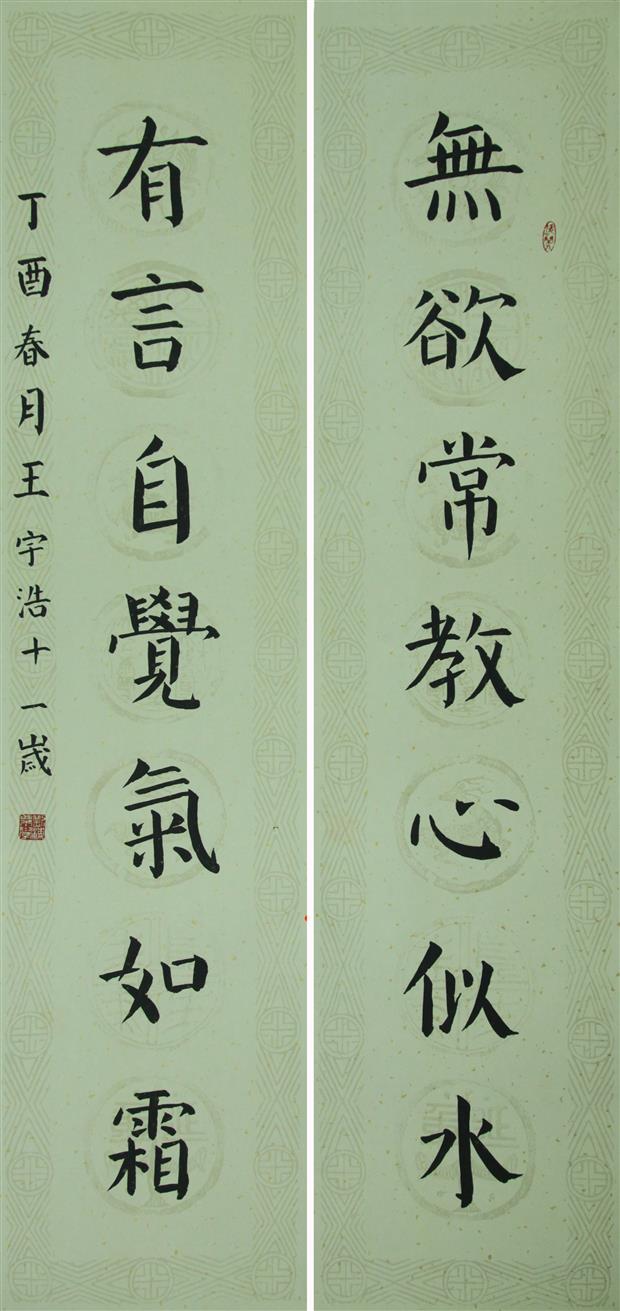 無欲常教心似水
有言自覺氣如霜
丁酉春月王宇浩十一歲